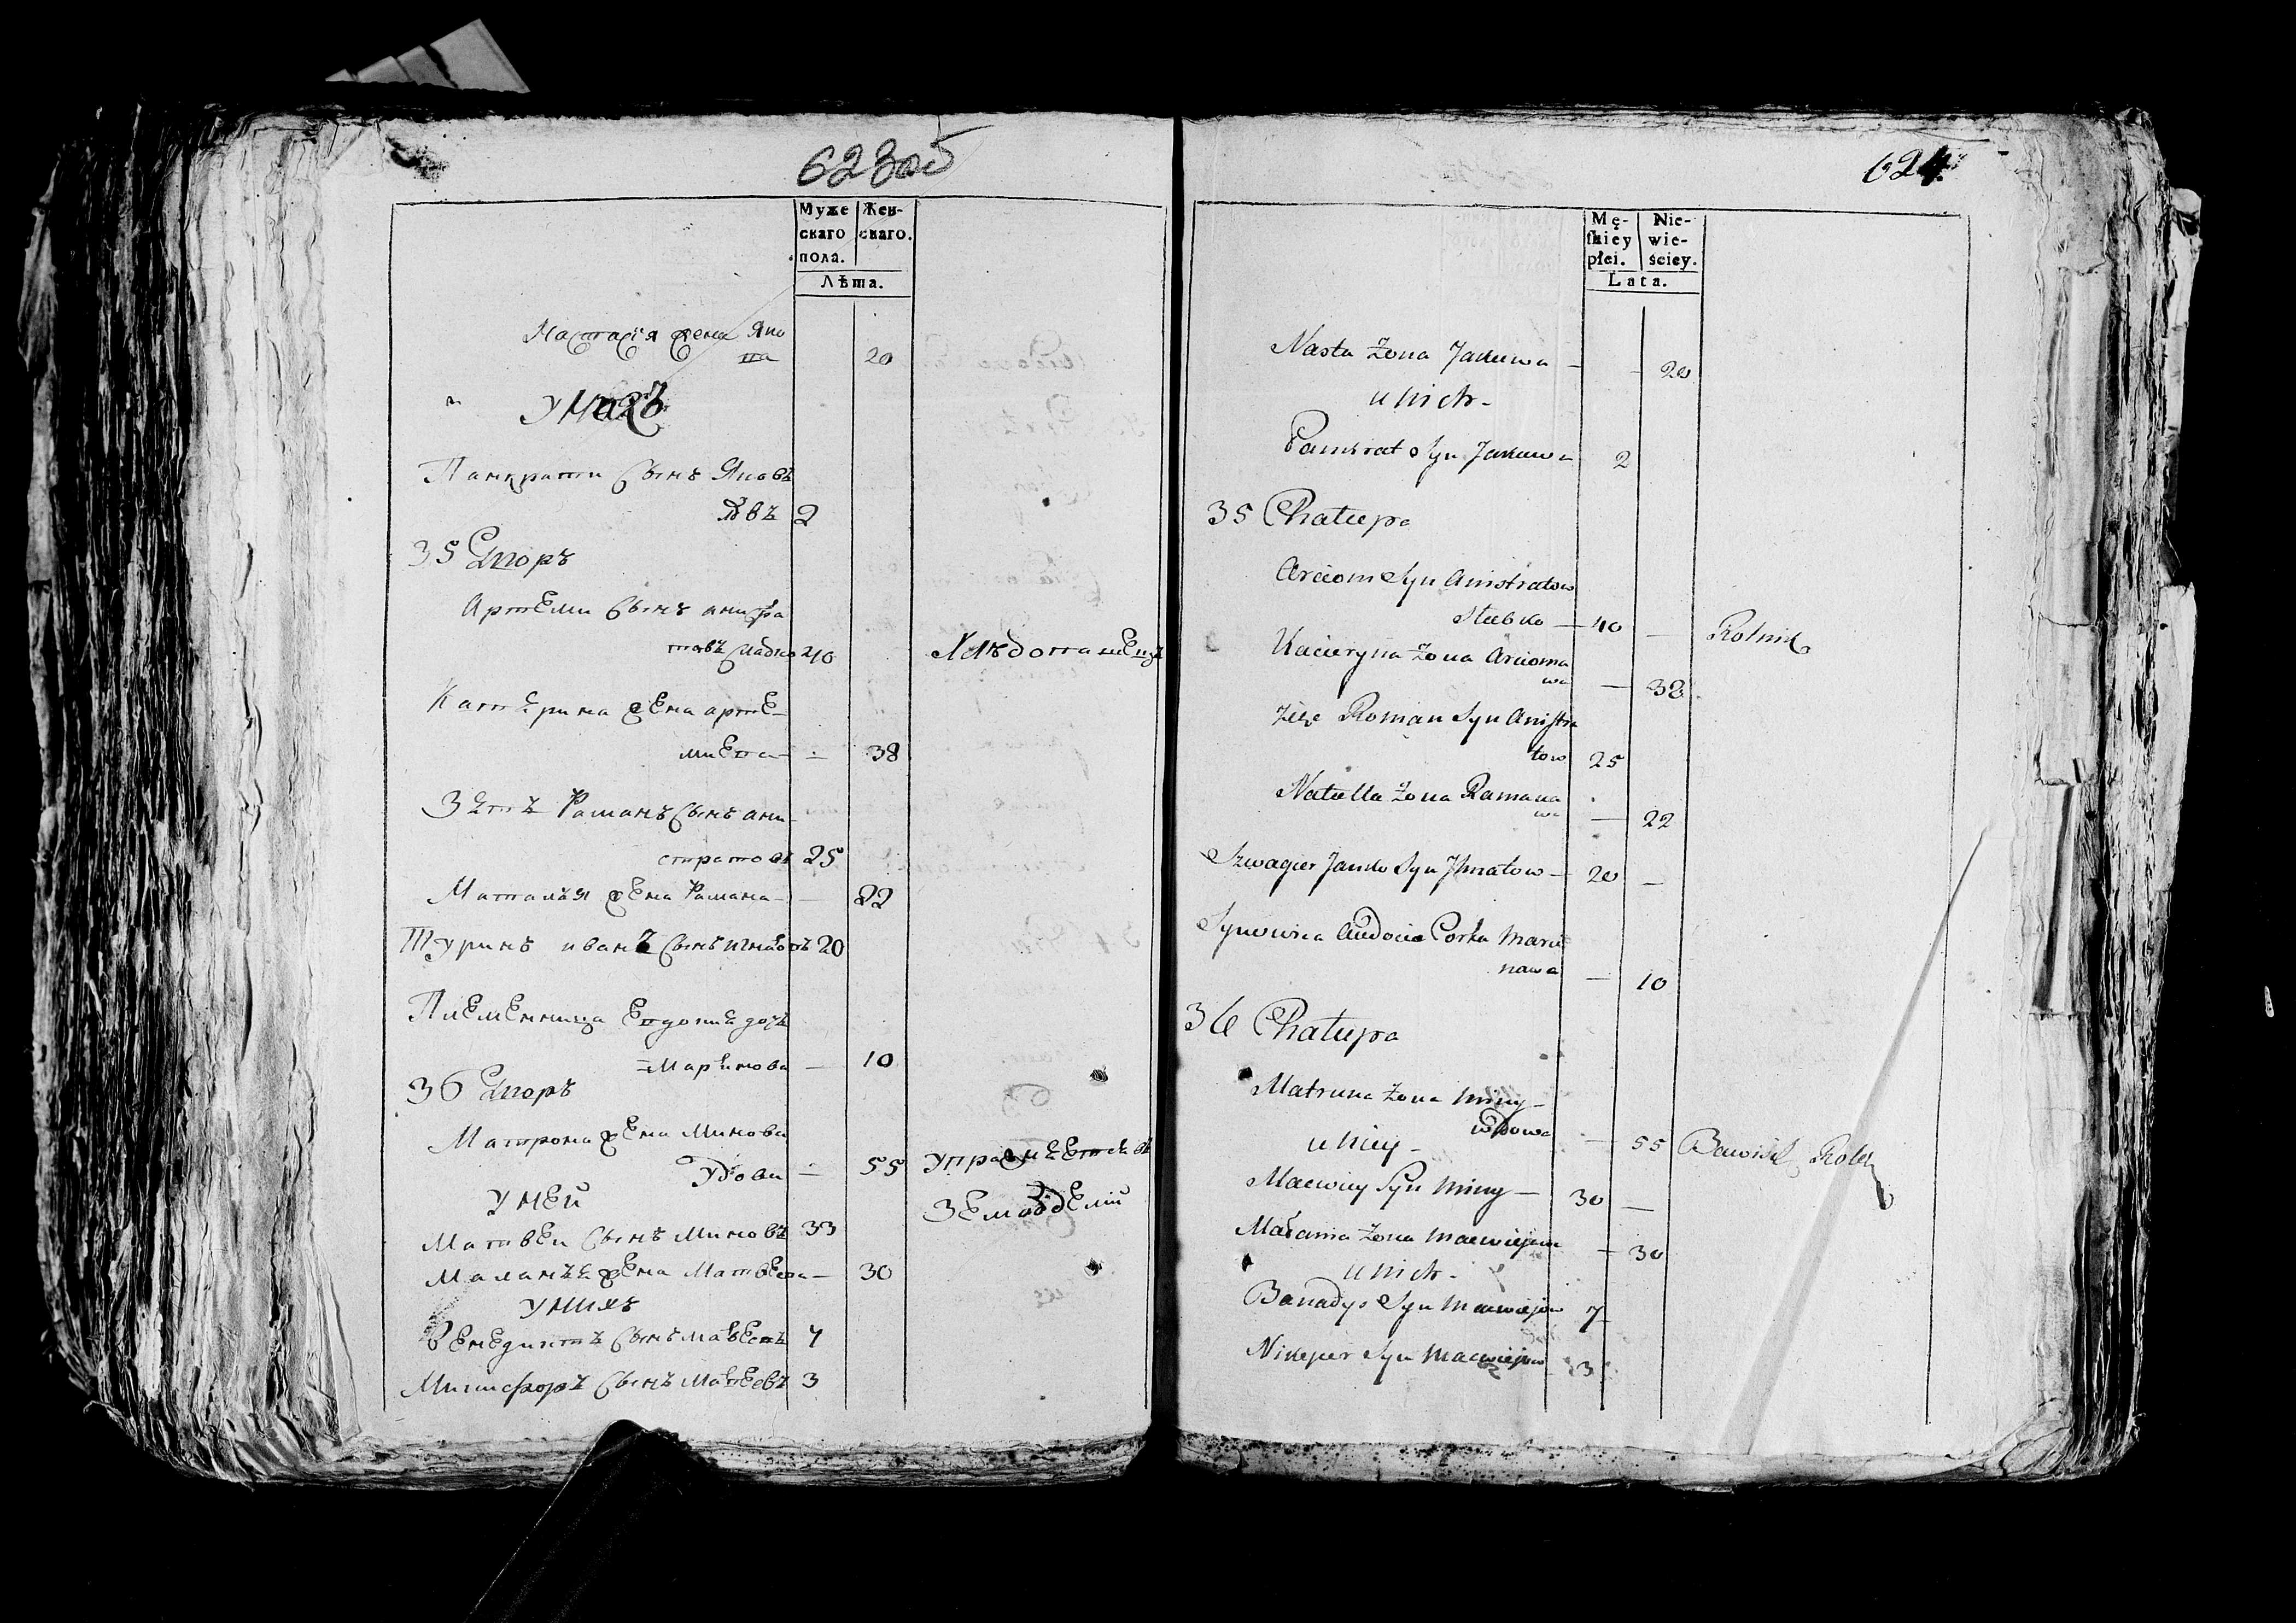 623 об
Муже
скаго
пола.
Жен-
скаго.
Лѣта.
Настасія жена Яко
ва 20
У нихъ
Панкрати сынъ Яковъ
2
35 Двор
Артеми сынъ анистра
товъ 40 Хлѣбопашецъ
Катерина жена арте-
миева — 38
Зеть Раманъ сынъ ани-
стратовъ 25
Наталья жена Рамана — 22
Шуринъ иванъ сынъ игнатовъ 20
Племенница Евдокия дочь
Маринова — 10
36 Двор
Матрона жена Минова
Удова — 55 упражняется в
У ней
земледелии
Матвеи сынъ Миновъ 33
Маланья жена Матвеева — 30
У нихъ
Венедиктъ сынъ Матвеевъ 7
Никифоръ сынъ Матвеевъ 3
624
Mę-
skiey
płci.
Nie-
wie-
ściey.
Lata.
Nasta Żona Jakuwa — 20
u nich -
Pamkrat Syn Jakuwa 2
35 Chałupa
Arciom Syn Anistratow
40 — Rolnik
Kacieryna Żona Arcioma
wa — 38
Zięć Roman Syn Anistra
tow 25
Natalla Żona Ramana
wa — 22
Szwagier Janko Syn Ihnatow — 20 —
Synowica Audocia Corka Mary
nawa — 10
36 Chałupa
Matruna Żona Miny —
Wdowa — 55
u niey -
Maciwiey Syn Miny — 30 —
Małania Żona Maciwiejowa — 30
u nich -
Banadys Syn Maciwiejow 7
Nikiper Syn Maciwiejow 3